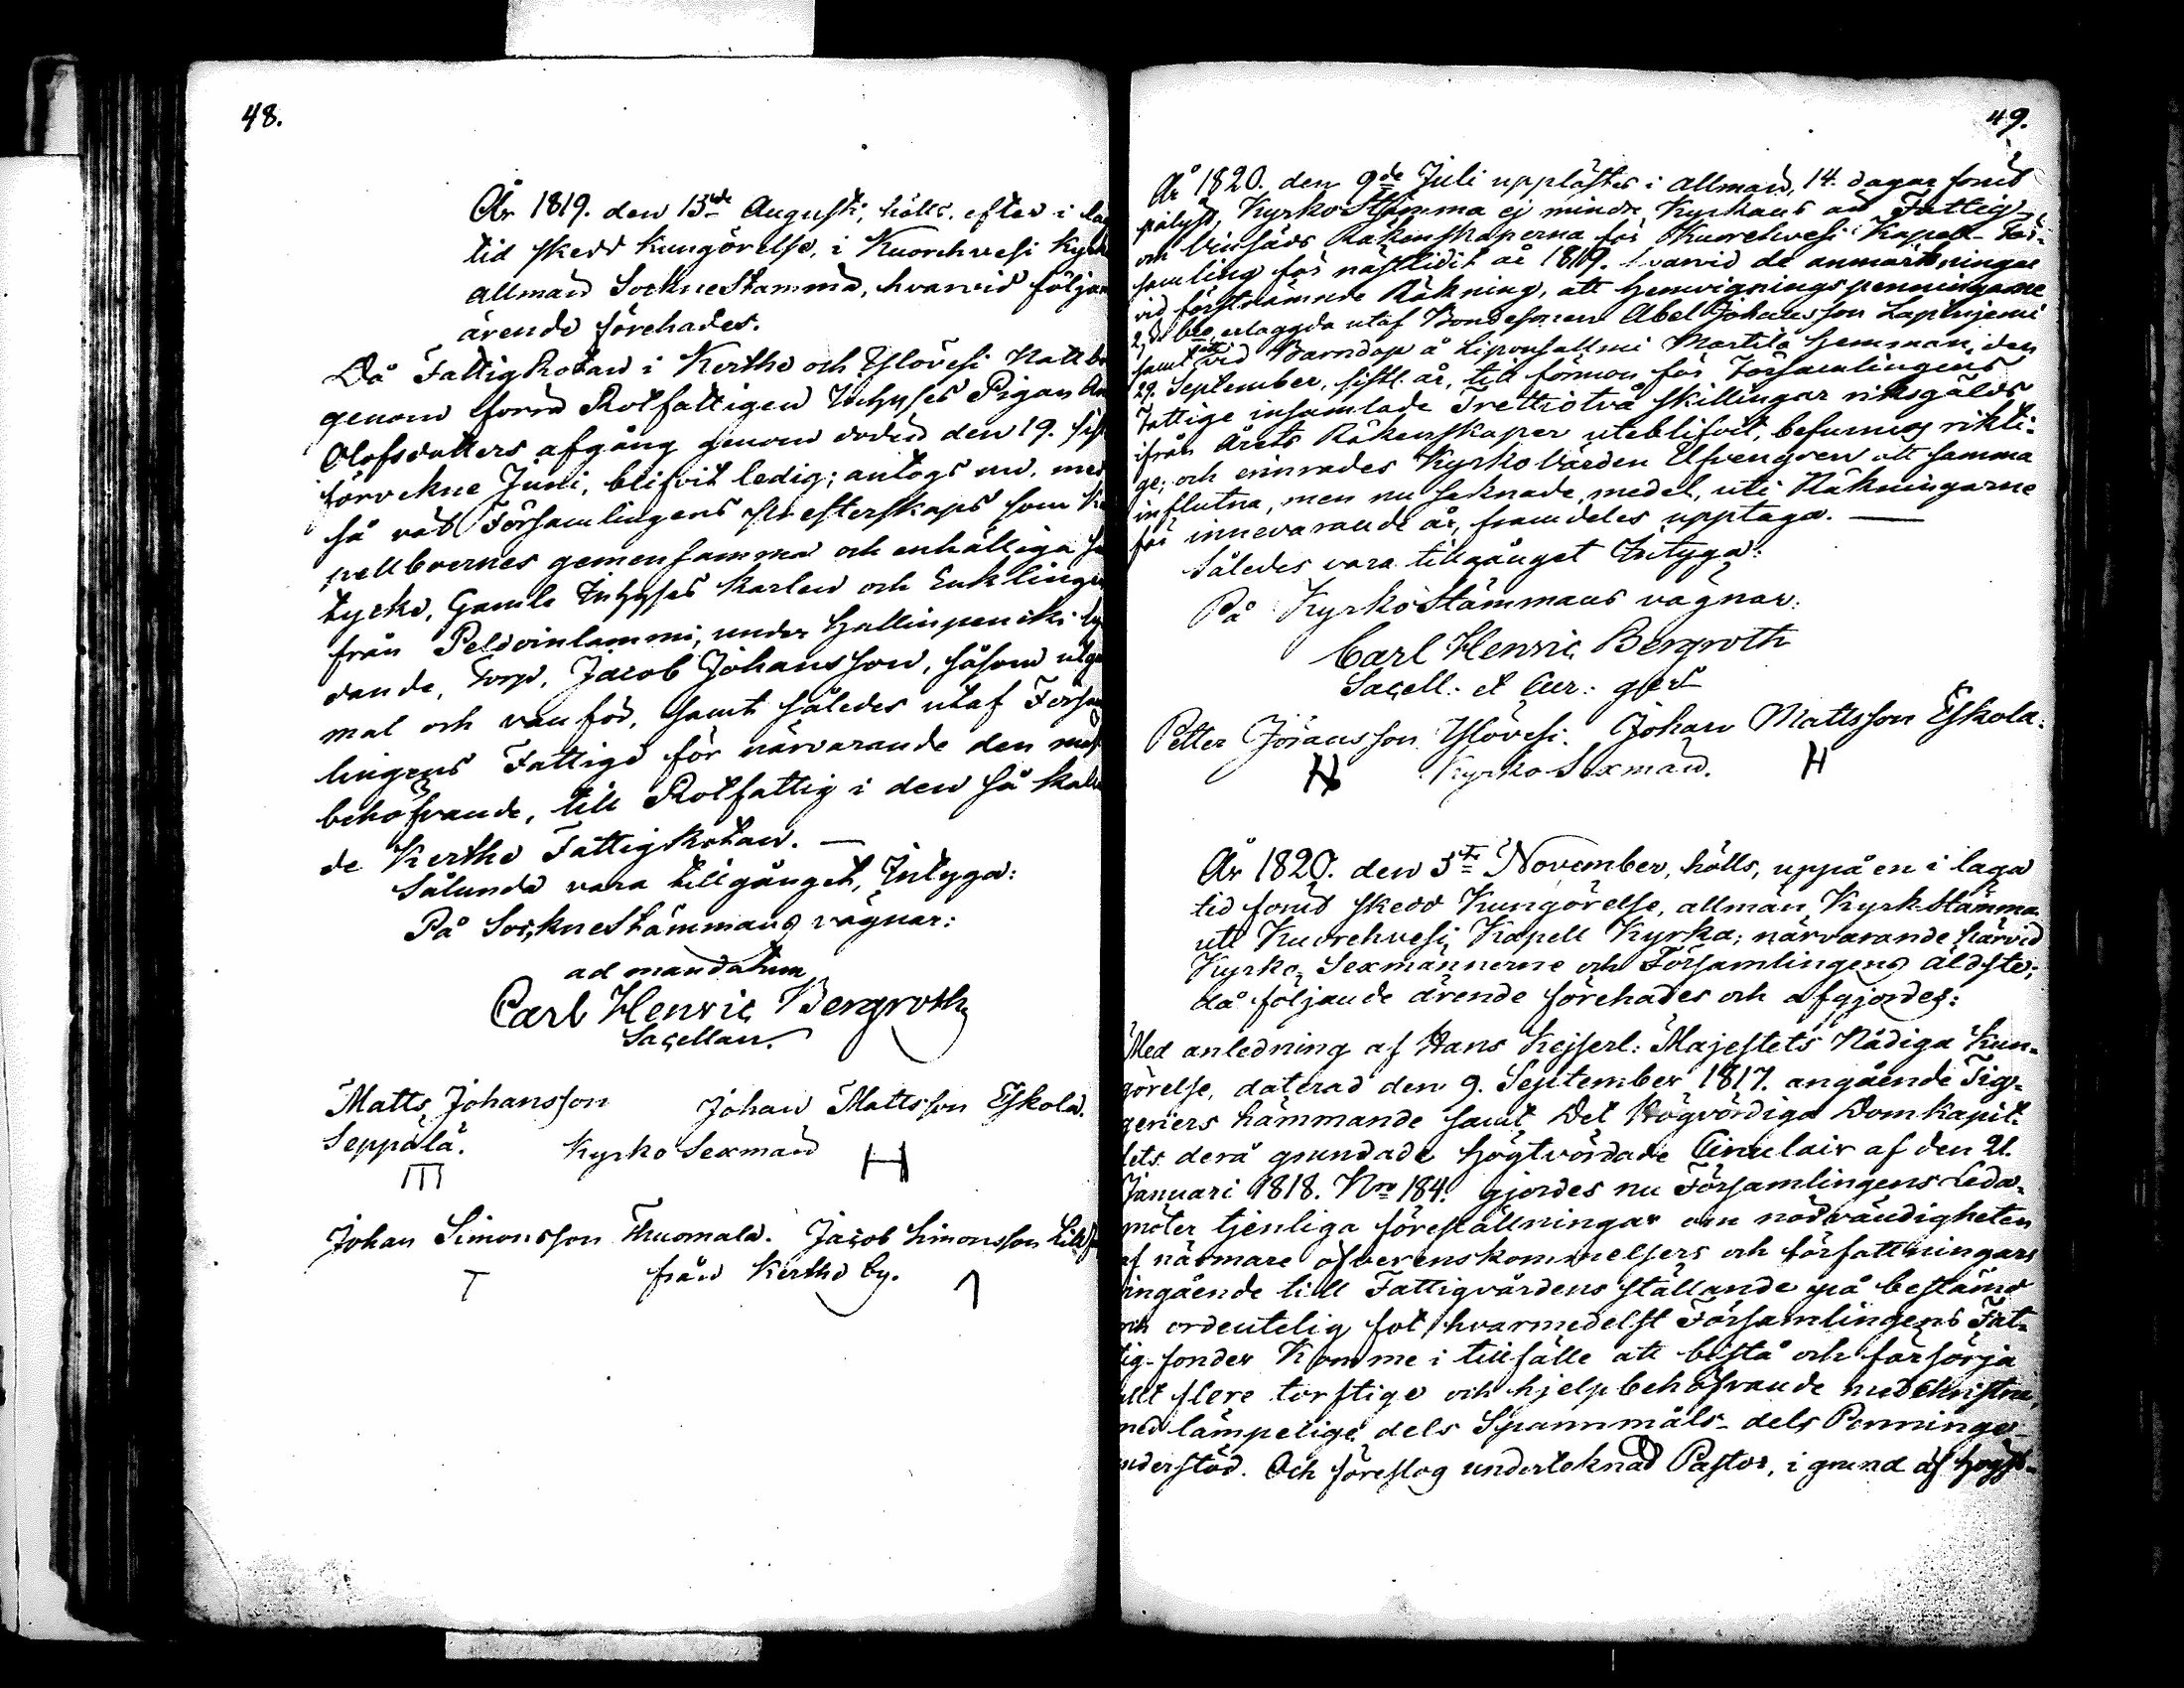 48.
År 1819. den 15de Augusti, hölls, efter i
tid skedd kungörelse, i Kuorehvesi Kyrk
allmän SockneStämma, hvarvid följan
ärende förehades.
Då FattigRotan i Kertho och Ylövesi
genom forna Rotfattigen Inhyses Pigan
Olofsdotters afgång genom döden den 19.
förvekne Juni, blifvit ledig; antogs nu, med
så väl Församlingens Presterskaps som
pellboernes gemensamma och enhälliga
tycke, Gamle Inhyses Karlen och Enklingen
från Peldoinlammi, under Hallinpenicki ly
dande, Torp, Jacob Johansson, såsom utga
mal och vanför, samt således utaf Försam
lingens Fattige för närvarande den mest
behöfvande, till Rotfattig i den så kalla
de Kertho FattigRotan. —
Sålunda vara tillgånget, Intyga:
På SockneStämmans vägnar:
ad mandatum
Carl Henric Bergroth
Sacellan.
Matts Johansson Johan Mattsson Eskola.
Seppälä. Kyrko Sexmän
Johan Simonsson Thuomala. Jacob Simonsson
från Kertho by.
49.
År 1820. den 9de Juli upplästes i allmän, 14. dagar förut
pålyst, KyrkoStämma ej mindre Kyrkans än Fattig-
och Vinsäds Räkenskaperna för Kuorehvesi Kapell-För-
samling för nästlidit år 1819. hvarvid de anmärkningar
vid förstnämnde Räkning, att Hemvigningspenningarne
2 Rd erlaggda utaf Bondesonen Abel Johansson Laphijemi
samt vid Barndop å Liponsallmi Martila Hemman, den
29. September, sistl. år, till förmon för Församlingens
Fattige insamlade Trettiotvå skillingar riksgälds
ifrån Årets Räkenskaper uteblifvit, befunnos rikti-
ge; och erinrades KyrkoVärden Ulvengren att samma
influtna, men nu saknade, medel, uti Räkningarne
för innevarande år, framdeles upptaga. —
Således vara tillgånget Intyga:
På KyrkoStämmans vägnar:
Carl Henric Bergroth
Sacell: et Cur: gert
Petter Jöransson Ylövesi. Johan Mattsson Eskola:
Kyrko Sexmän.
År 1820. den 5te November, hölls, uppå en i laga
tid förut skedd Kungörelse, allmän KyrkStämma
uti Kuorehvesi Kapell Kyrka; närvarande härvid
Kyrko Sexmännerne och Församlingens äldste;
då följande ärende förehades och afgjordes:
Med anledning af Hans Kejserl: Majestets Nådiga Kun-
görelse, daterad den 9. September 1817. angående Tig-
geriers hämmande samt Det Högvördiga Domkapit-
lets derå grundade högtvördade Circulair af den 21.
Januari 1818. Nro 184. gjordes nu Församlingens Leda-
möter tjenliga föreställningar om nödvändigheten
af närmare öfverenskommelsers och författningars
ingående till Fattigvårdens ställande på bestämd
och ordentelig fot, hvarmedelst Församlingens Fat-
tig-fonder Komme i tillfälle att bestå och försörja
allt flere torftige och hjelpbehöfvande medchristne,
med lämpelige dels Spannmåls- dels Penninge-
understöd. Och föreslog underteknad Pastor, i grund af högst-